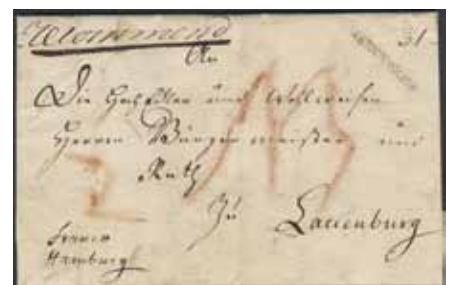 Recommend
31
An
Die Hochedlen und Wohlweisen
Herren Bürgermeister und
Rath
Zu Lauenburg
franco
Hamburg